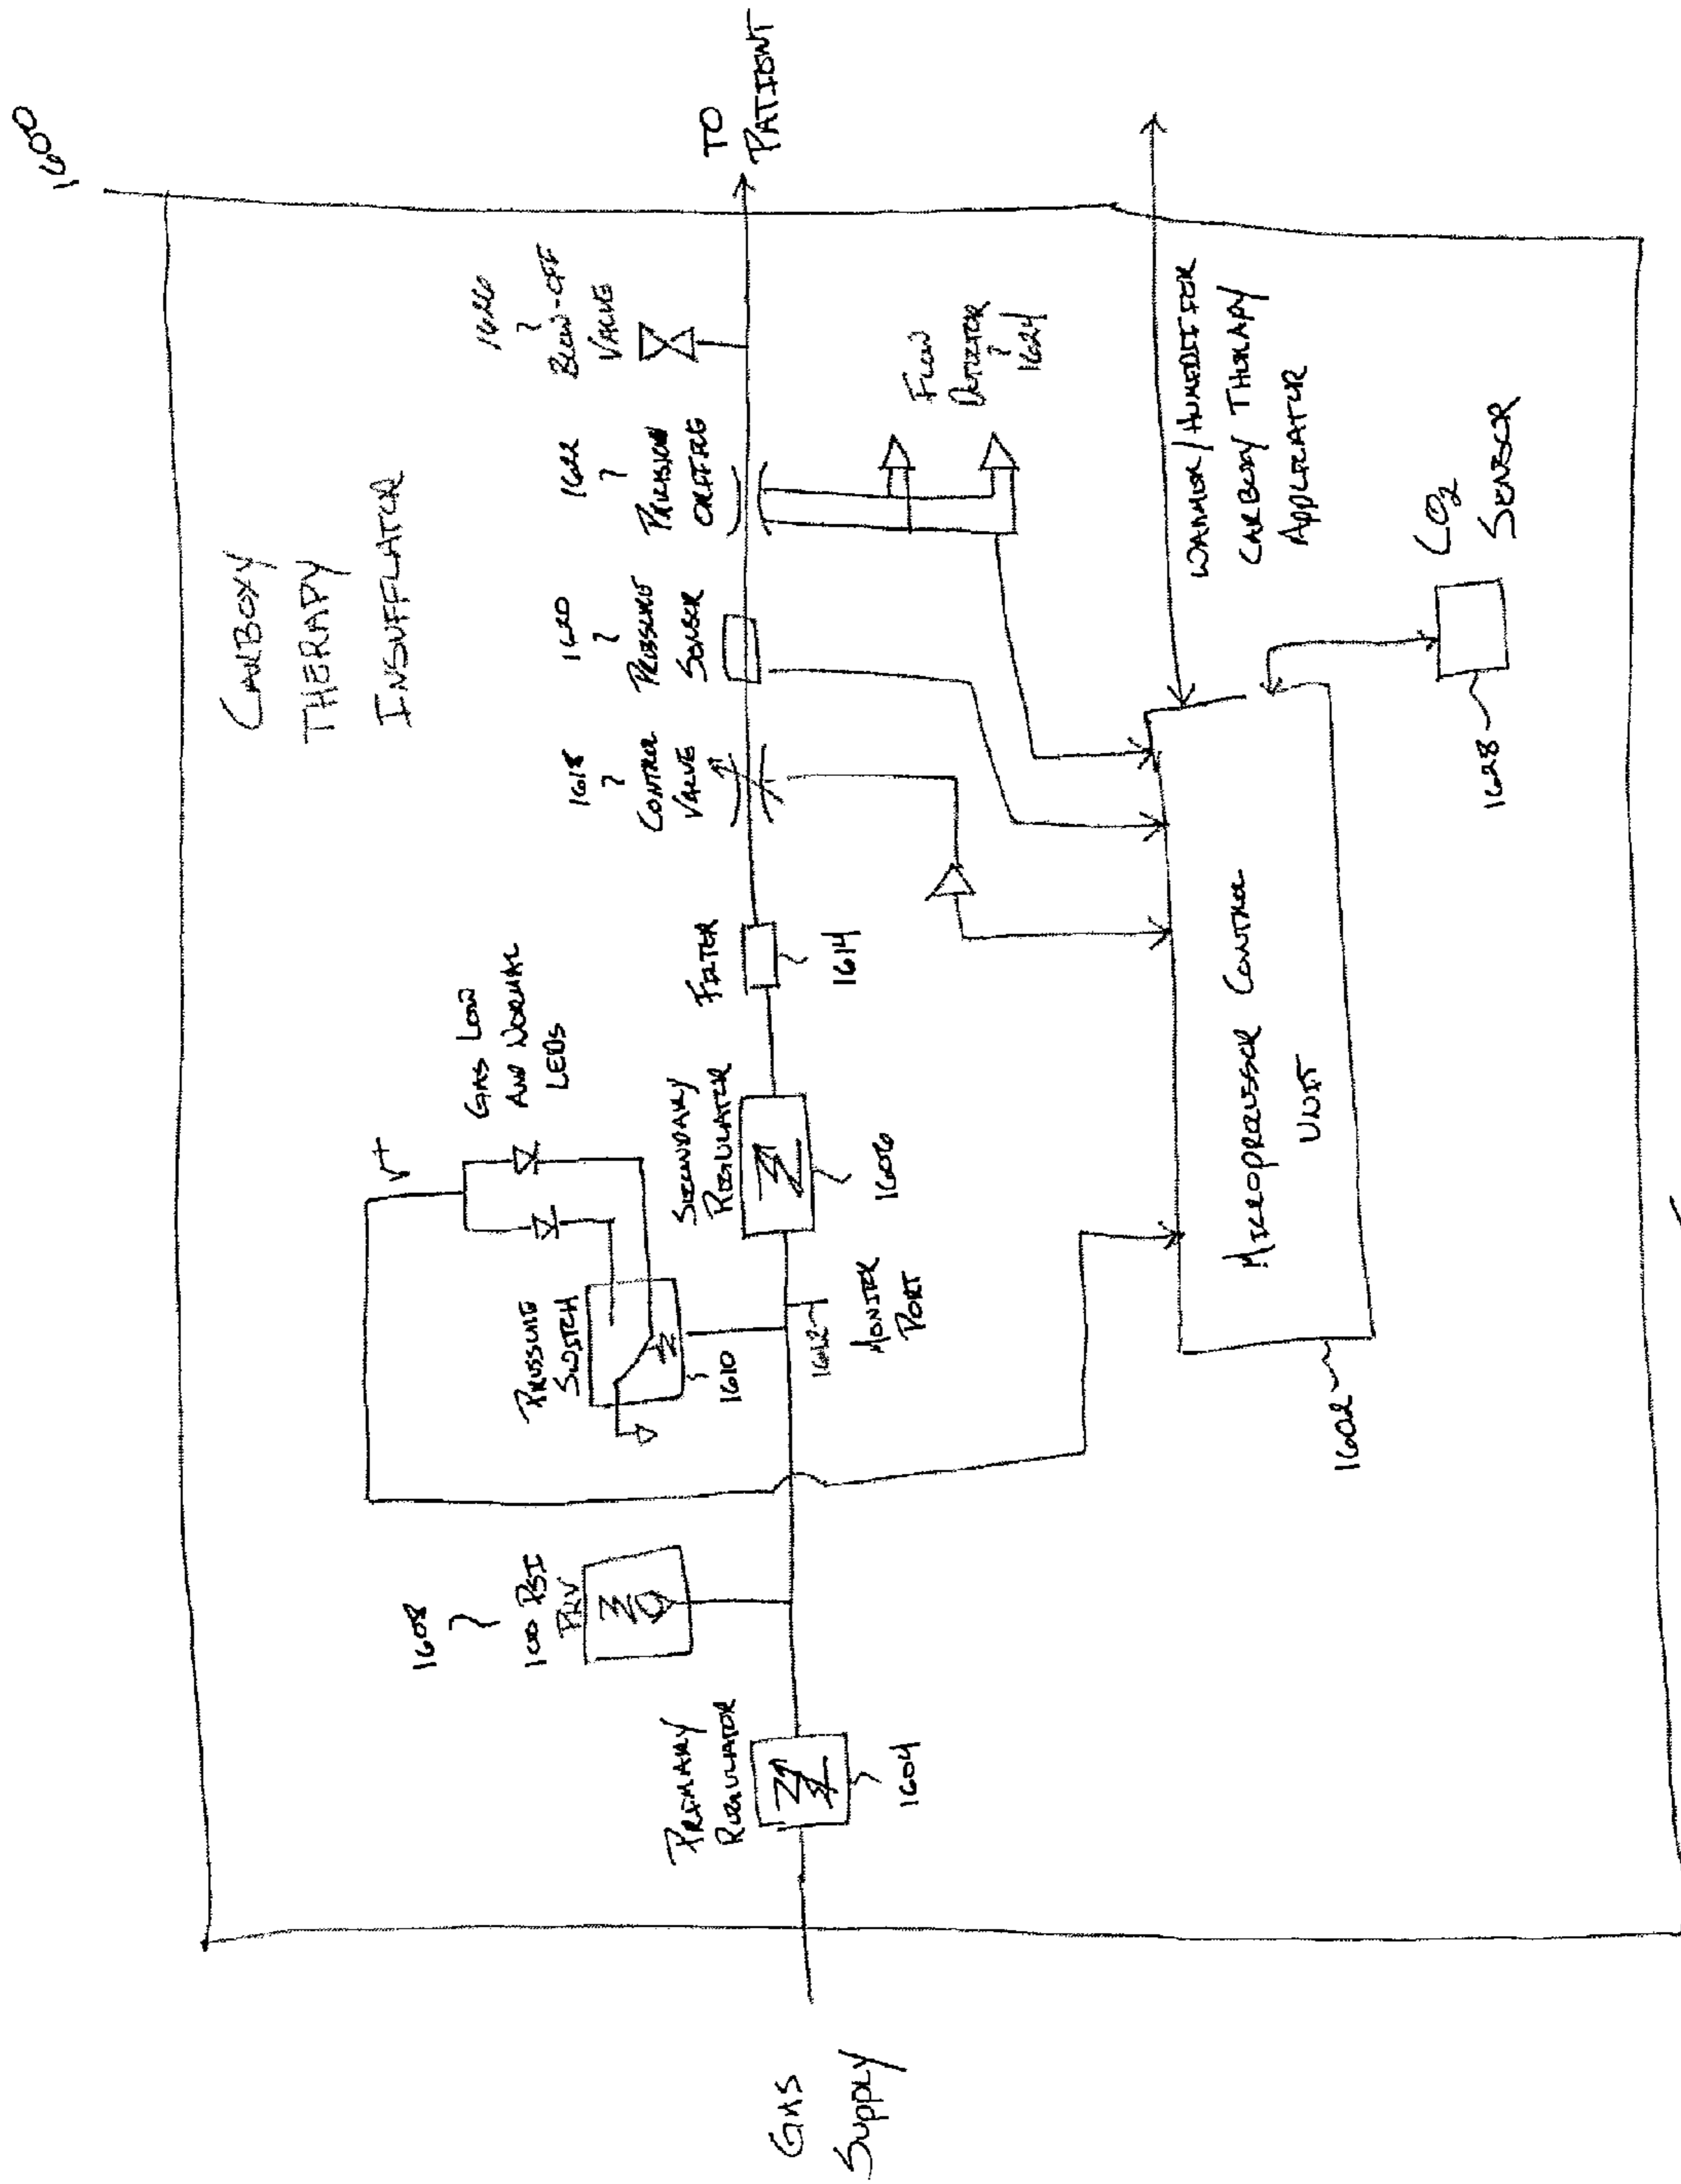 1600
CARBOXY
THERAPY
INSUFFLATOR
GAS
SUPPLY
PRIMARY
REGULATOR
1604
1608
100 PSI
PRV
PRESSURE
SWITCH
1610
V+
GAS LOW
AND NORMAL
LEDS
1612
MONITOR
PORT
SECONDARY
REGULATOR
1606
FILTER
1614
1618
CONTROL
VALVE
1620
PRESSURE
SENSOR
1622
PRECISION
ORIFICE
1626
BLOW-OFF
VALVE
TO
PATIENT
FLOW
DETECTOR
1624
WARMER/HUMIDIFIER
CARBOXY THERAPY
APPLICATOR
MICROPROCESSOR CONTROL
UNIT
1602
CO2
SENSOR
1628